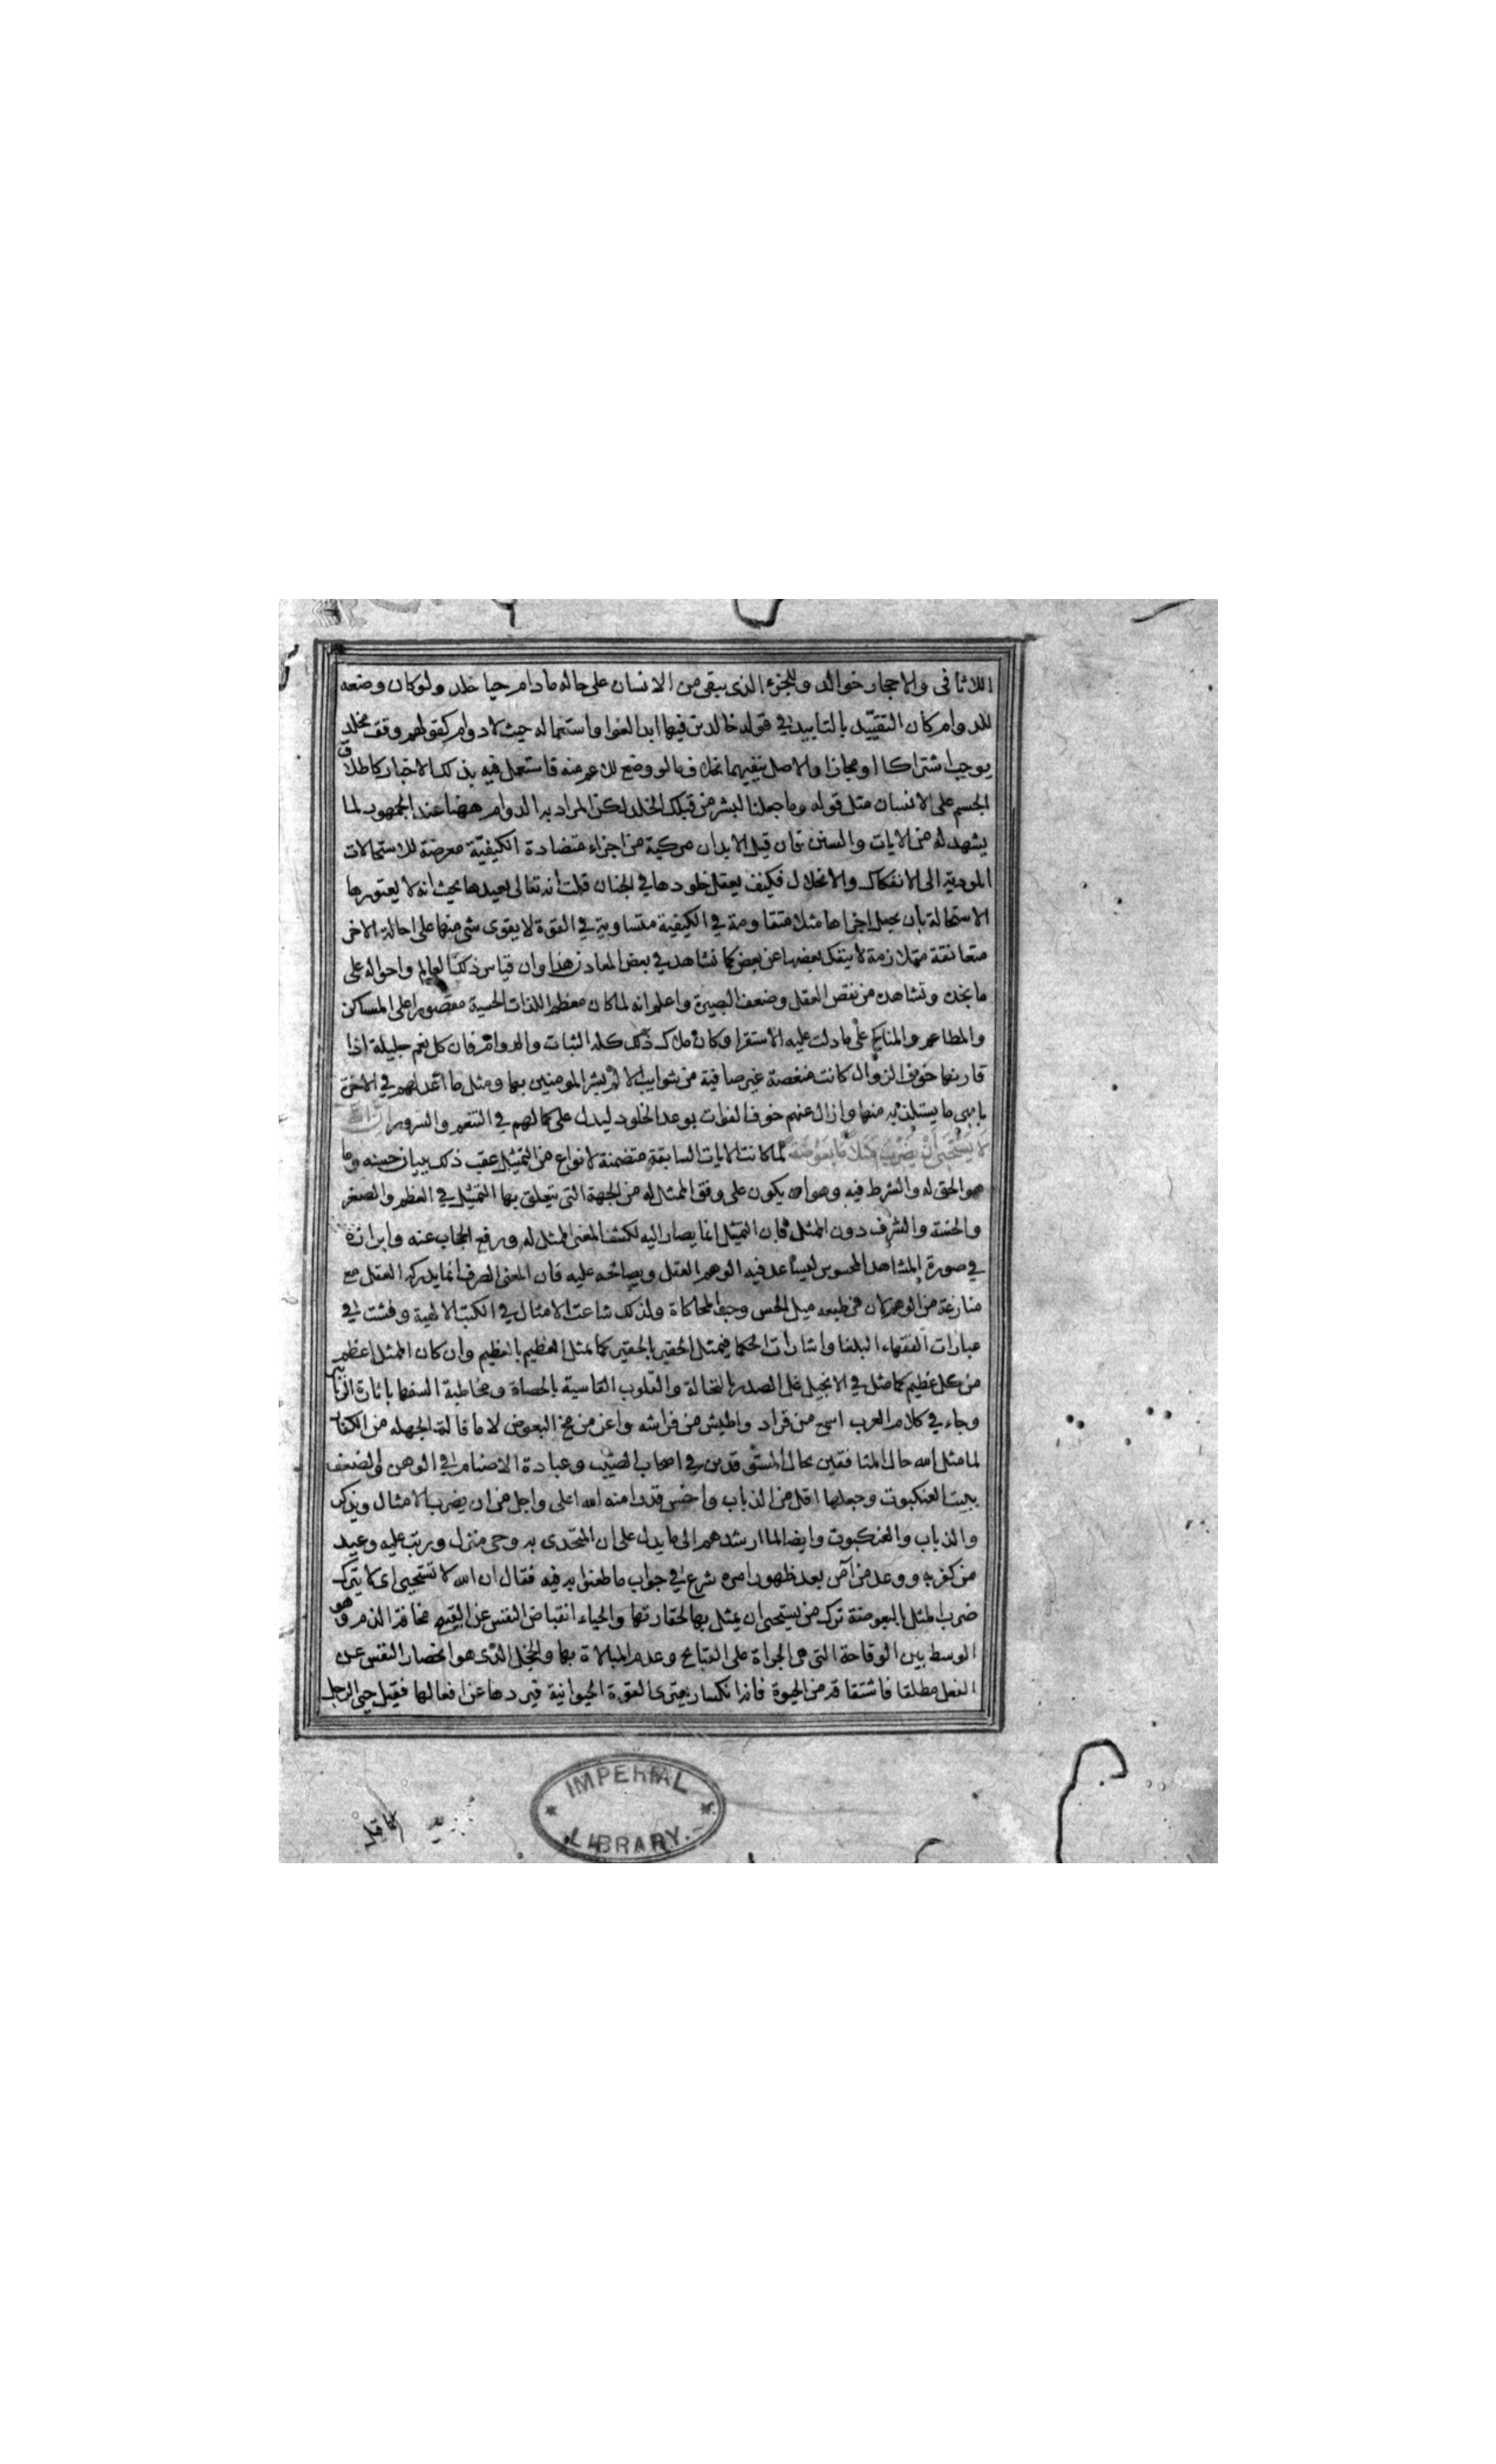 للاثافى والاحجار خوالد وللجزء الذى يبقى من الانسان على حاله مادام حيا خلد ولو كان وضعه
للدوام كان التقييد بالتابيد في قوله خالدين فيها ابدا لغوا واستعماله حيث لا دوام كقولهم وقف مخلد
يوجب اشتراكا او مجازا والاصل ينفيهما بخلاف مالو وضع للاعم منه فاستعمل فيه بذلك الاعتبار كاطلاق
الجسم على الانسان مثل قوله وما جعلنا لبشر من قبلك الخلد لكن المراد به الدوام ههنا عند الجمهور لما
يشهد له من الايات والسنن فان قيل الابدان مركبة من اجزاء متضادة الكيفيّة معرضة للاستحالات
المودية الى الانفكاك والانحلال فكيف يعقل خلودها في الجنان قلت انه تعالى يعيدها بحيث انه لا يعتورها
الاستحالة بان يجعل اجزاها مثلا متقاومة في الكيفية متساوية في القوة لا يقوى شى منها على احالة الاخر
متعانقة متلازمة لا ينفك بعضها عن بعض كما نشاهد في بعض المعادن هذا وان قياس ذلك العالم واحواله على
ما نجده ونشاهده من نقص العقل وضعف البصيرة واعلم انه لما كان معظم اللذات الحسية مقصورا على المساكن
والمطاعم والمناكح على ما دلت عليه الاستقرا وكان ملاك ذلك كله الثبات والدوام فان كل نعم جليلة اذا
قارنها خوف الزوال كانت منغصة غير صافية من شوايب الالم بشر المومنين بها ومثل ما اعد لهم في الاخرة
بابهى ما يستلذ به منها وازال عنهم خوف الفوات بوعد الخلود ليدل على كمالهم في التنعم والسرور ان الله
لا يستحيى ان يضرب مثلا ما بعوضة لما كانت الايات السابقة متضمنة لانواع من التمثيل عقب ذلك ببيان حسنه وما
هو الحق له والشرط فيه وهو ان يكون على وفق الممثل له من الجهة التى يتعلق بها التمثيل في العظم والصغر
والخسة والشرف دون الممثل فان التمثيل انما يصار اليه لكشف المعنى الممثل له ورفع الحجاب عنه وابرازه
في صورة المشاهد المحسوس ليساعد فيه الوهم العقل ويصالحه عليه فان المعنى الصرف انما يدركه العقل مع
منازعة من الوهم لان من طبعه ميل الحس وحب المحاكاة ولذلك شاعت الامثال في الكتب الالهية وفشت في
عبارات الفقهاء البلغا واشارات الحكما فيمثل الحقير بالحقير كما يمثل العظيم بالعظيم وان كان الممثل اعظم
من كل عظيم كما مثل في الانجيل غل الصدر بالنخالة والقلوب القاسية بالحصاة ومخاطبة السفها باثارة الزنابير
وجاء في كلام العرب اسمع من قراد واطيش من فراشه واعز من مخ البعوض لا ما قالت الجهله من الكفار
لما مثل الله حال المنافقين بحال المستوقدين في اصحاب الصيّب وعبادة الاصنام في الوهن والضعف
ببيت العنكبوت وجعلها اقل من الذباب واخس قدرا منه الله اعلى واجل من ان يضرب الامثال ويذكر
والذباب والعنكبوت وايضا لما ارشدهم الى ما يدل على ان المتحدى به وحى منزل ورتب عليه وعيد
من كفر به ووعد من آمن بعد ظهور امره شرع في جواب ما طعنوا به فيه فقال ان الله لا يستحيى اى لا يترك
ضرب المثل بالبعوضة ترك من يستحيى ان يمثل بها لحقارتها والحياء انقباض النفس عن القبيح مخافة الذم وهو
الوسط بين الوقاحة التى هى الجراة على القبايح وعدم المبالاة بها والخجل الذى هو انحصار النفس عن
الفعل مطلقا فاشتقاقه من الحيوة فانه انكسار يعترى القوة الحيوانية فيردها عن افعالها فقيل حيى الرجل
IMPERIAL
LIBRARY.